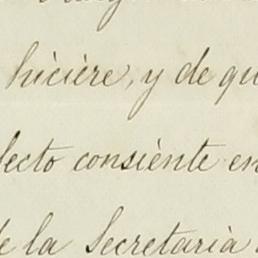 hicière, y de qu
lecto consiènte en
de la Secretaria